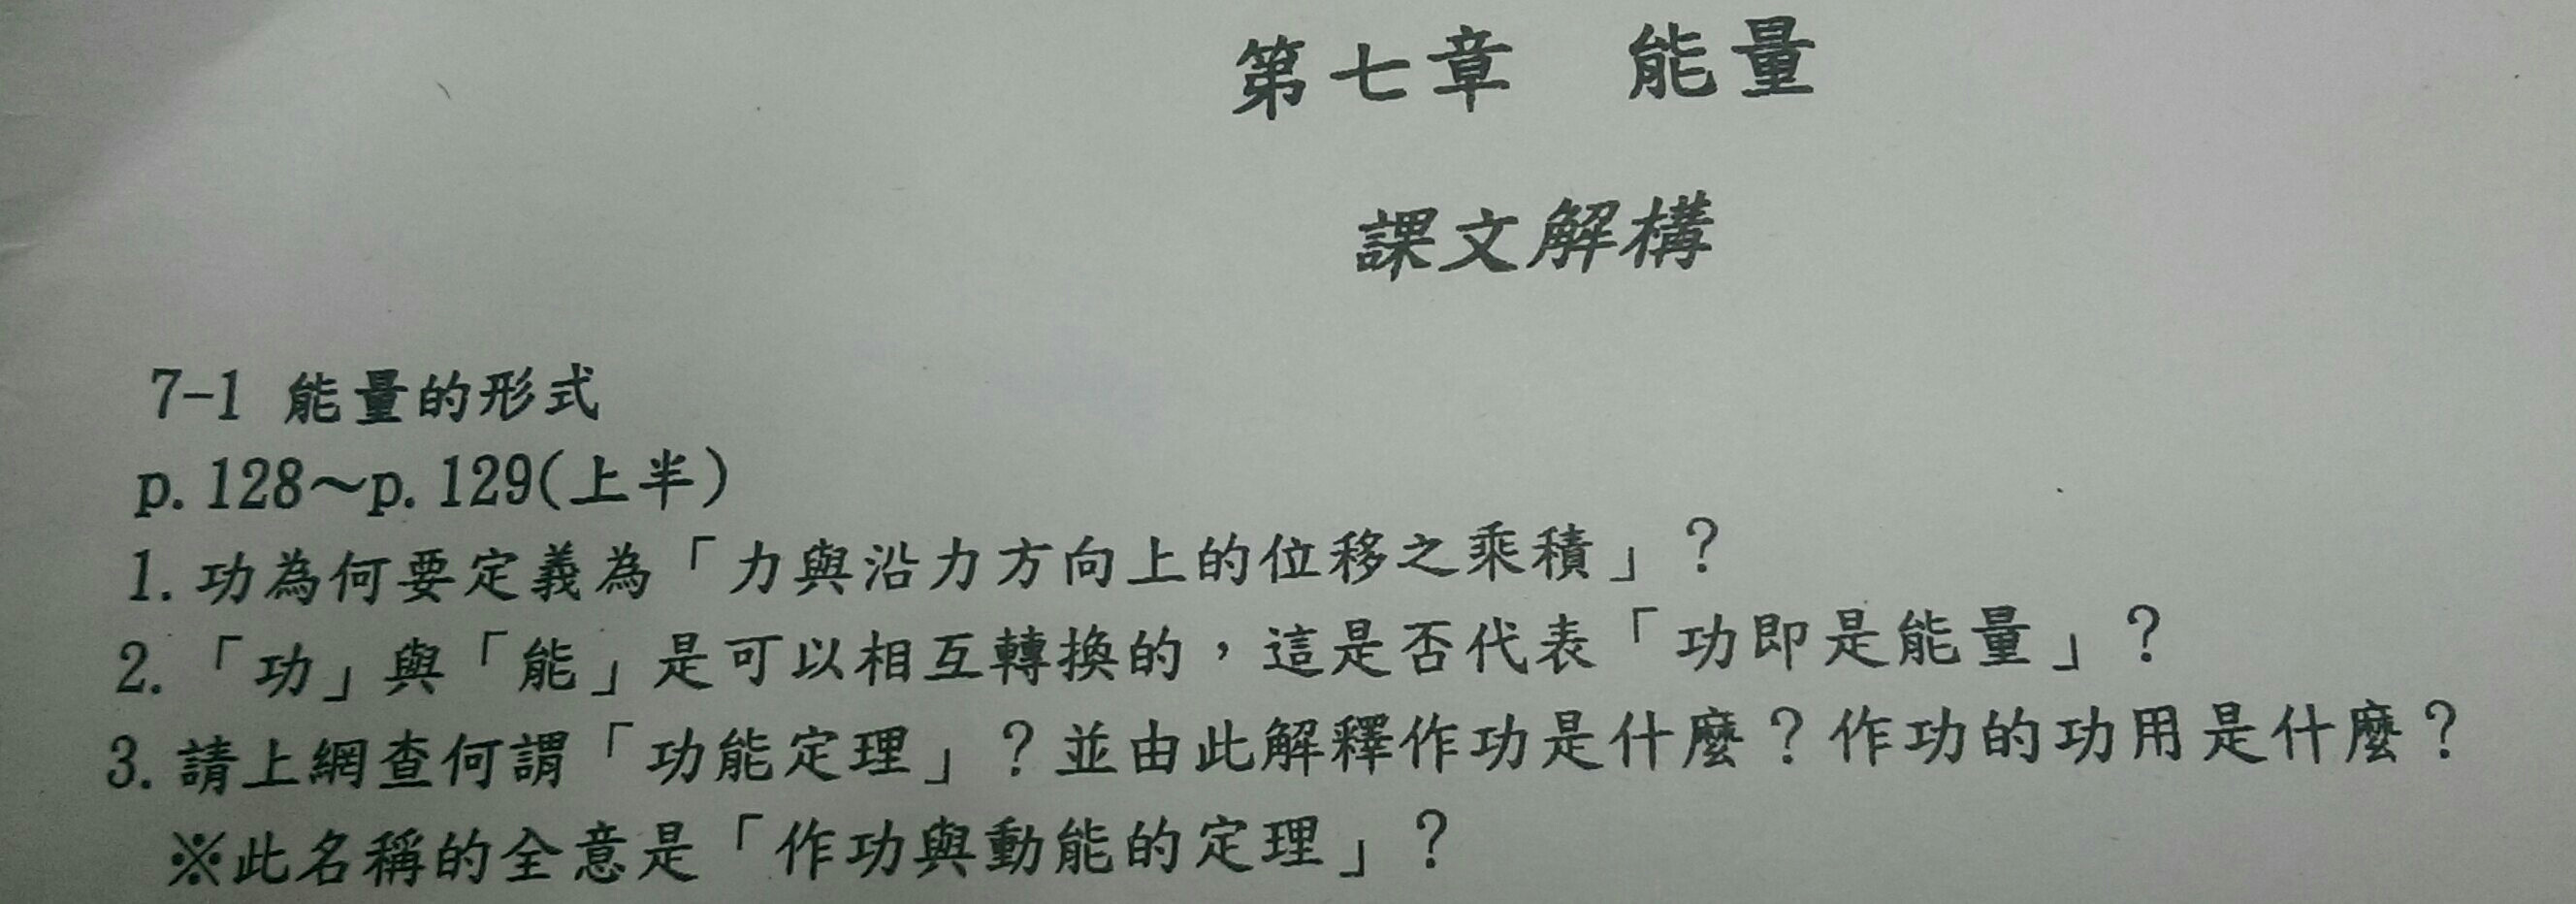 第七章　能量
課文解構
7-1 能量的形式
p.128～p.129(上半)
1.功為何要定義為「力與沿力方向上的位移之乘積」？
2.「功」與「能」是可以相互轉換的，這是否代表「功即是能量」？
3.請上網查何謂「功能定理」？並由此解釋作功是什麼？作功的功用是什麼？
※此名稱的全意是「作功與動能的定理」？